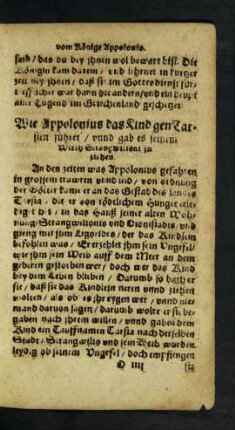 vom Könige Appolonio.
sind / das du bey jhnen wol bewart bist. Die
Königin kam darein / und lehrnet in kurtzer
zeit
alle Tugend im Griechenland geschetzet
Wie Appolonius das Kind gen Tar-
sien führet / vnnd gab es seinem
Wirth Stranguilioni zu
ziehen.
An den zeiten was Appolonius gefahren
in grossem trawren vnnd leid / von ordnung
der Götter kam er an das Gestad des lands
Tarsia / die er von tödtlichem Hunger erle-
digt het / in das Hauß seiner alten Woh-
nung / Stranguilionis vnd Dionisiadis / vnd
gieng mit jhm Ligorides / der das Kindlein
befohlen was / Er erzehlet jhm sein Ungefel /
wie jhm sein Weib auff dem Meer an dem
geberen gestorben wer / doch wer das Kind
bey dem Leben blieben / Darumb so bath er
sie / daß sie das Kindlein neren vnnd ziehen
wolten / als ob es jhr eygen wer / vnnd nie-
mand daruon sagen / darumb wolte er sie be-
gaben nach jhrem willen / vnnd gaben dem
Kind ein Tauffnamen Tarsia nach derselben
Stadt / Stranguilio vnd sein Weib wurden
leydig ob seinem Ungefel / doch empfiengen